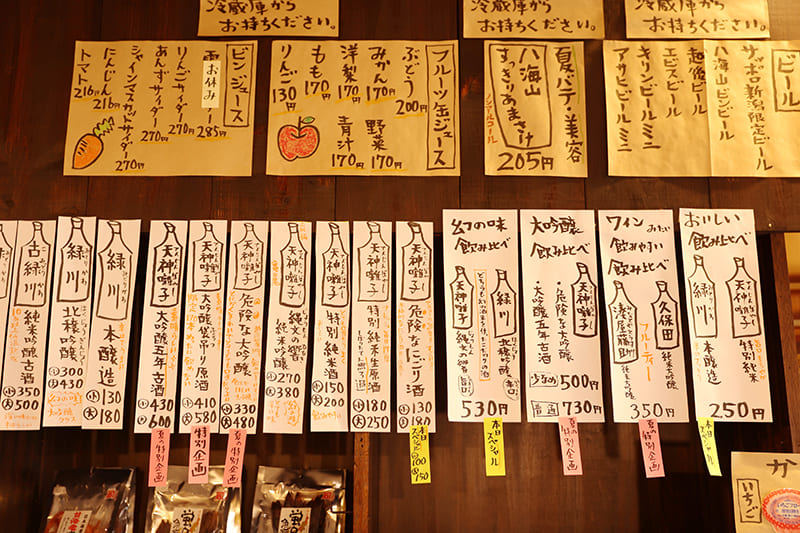 冷蔵庫から
お持ちください。
冷蔵庫から
お持ちください。
冷蔵庫から
お持ちください。
ビンジュース
お休み
285円
りんごサイダー
270円
あんずサイダー
270円
シャインマスカットサイダー
270円
にんじん
216円
トマト
216円
フルーツ缶ジュース
ぶどう
200円
みかん
170円
洋梨
170円
もも
170円
りんご
130円
野菜
170円
青汁
170円
夏バテ・美容
八海山
すっきりあまさけ
ノンアルコール
205円
ビール
サッポロ新潟限定ビール
八海山ビール
越後ビール
エビスビール
キリンビールミニ
アサヒビールミニ
おいしい
飲み比べ
天神囃子
特別純米
緑川
本醸造
250円
本日スペシャル
ワインみたい
飲みやすい
飲み比べ
久保田
純米吟醸
フルーティー
湊屋藤助
純米大吟醸
350円
夏の特別企画
大吟醸
飲み比べ
天神囃子
・危険な大吟醸
・大吟醸五年古酒
少なめ 500円
普通 730円
特別企画
幻の味
飲み比べ
緑川
北穣吟醸
天神囃子
純米の響
530円
本日スペシャル
天神囃子
危険なにごり酒
小130
大180
本日スペシャル
小100
大150
天神囃子
特別純米生原酒
小180
大250
天神囃子
特別純米
小150
大200
天神囃子
純米の響
純米吟醸
小270
大380
天神囃子
危険な大吟醸
小330
大480
夏の特別企画
天神囃子
大吟醸袋吊り原酒
小410
大580
特別企画
天神囃子
大吟醸五年古酒
小430
大600
夏の特別企画
緑川
本醸造
小130
大180
緑川
北穣吟醸
小300
大430
古緑川
純米吟醸古酒
小350
大500
か
いちご